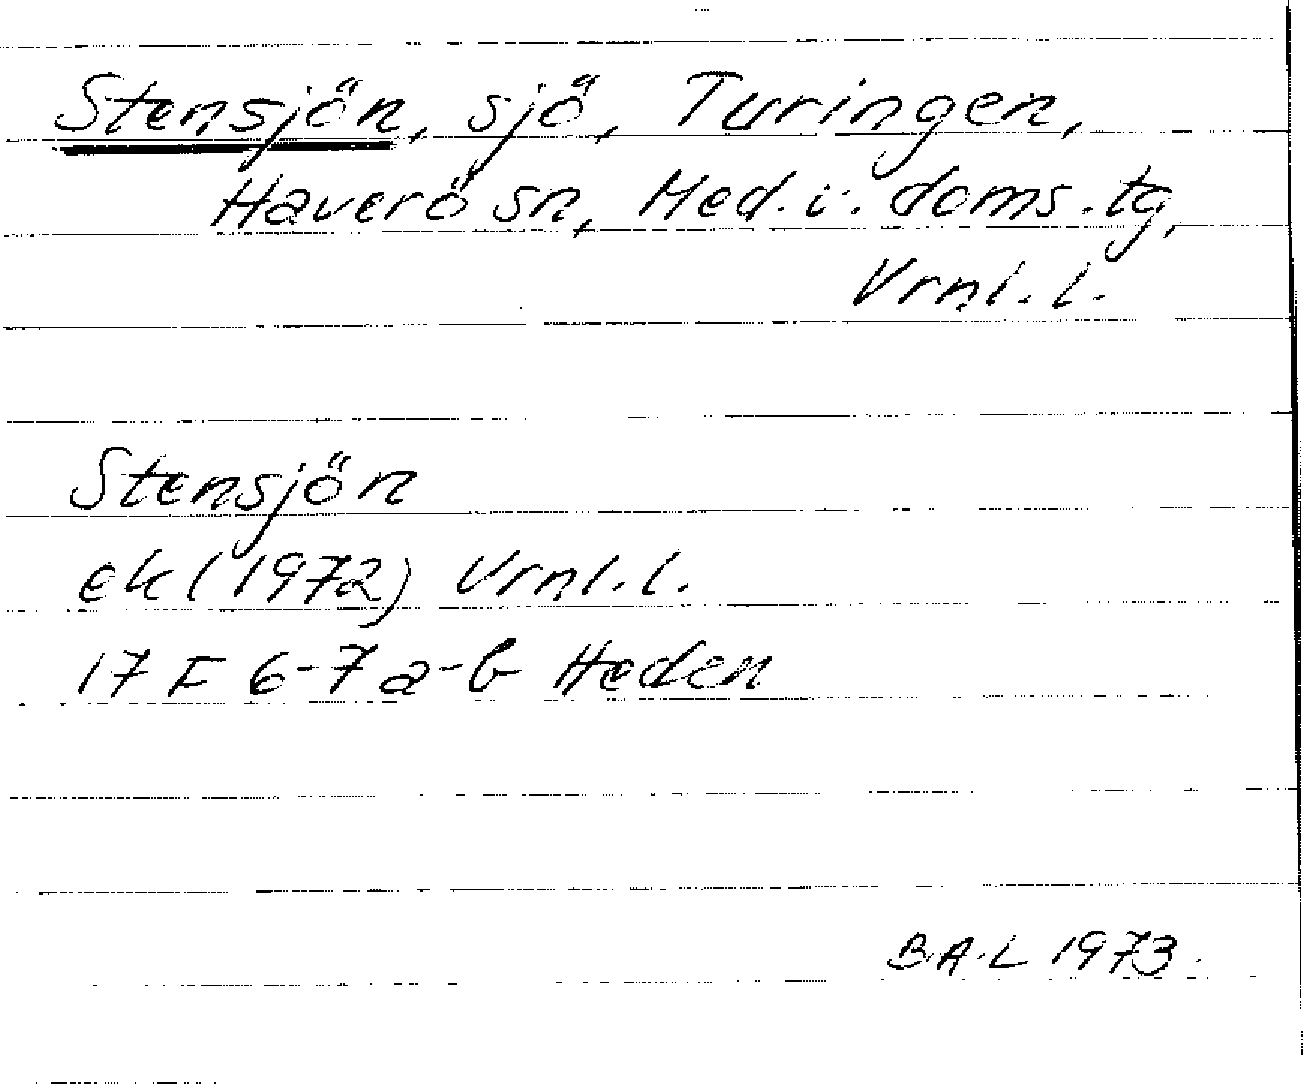 Stensjön, sjö, Turingen,
Haverö sn, Med. v. doms. tg,
Vrnl. l.
Stensjön
ek (1972) Vrnl. l.
17 F 6-7 a-b Heden
B.A.L 1973.